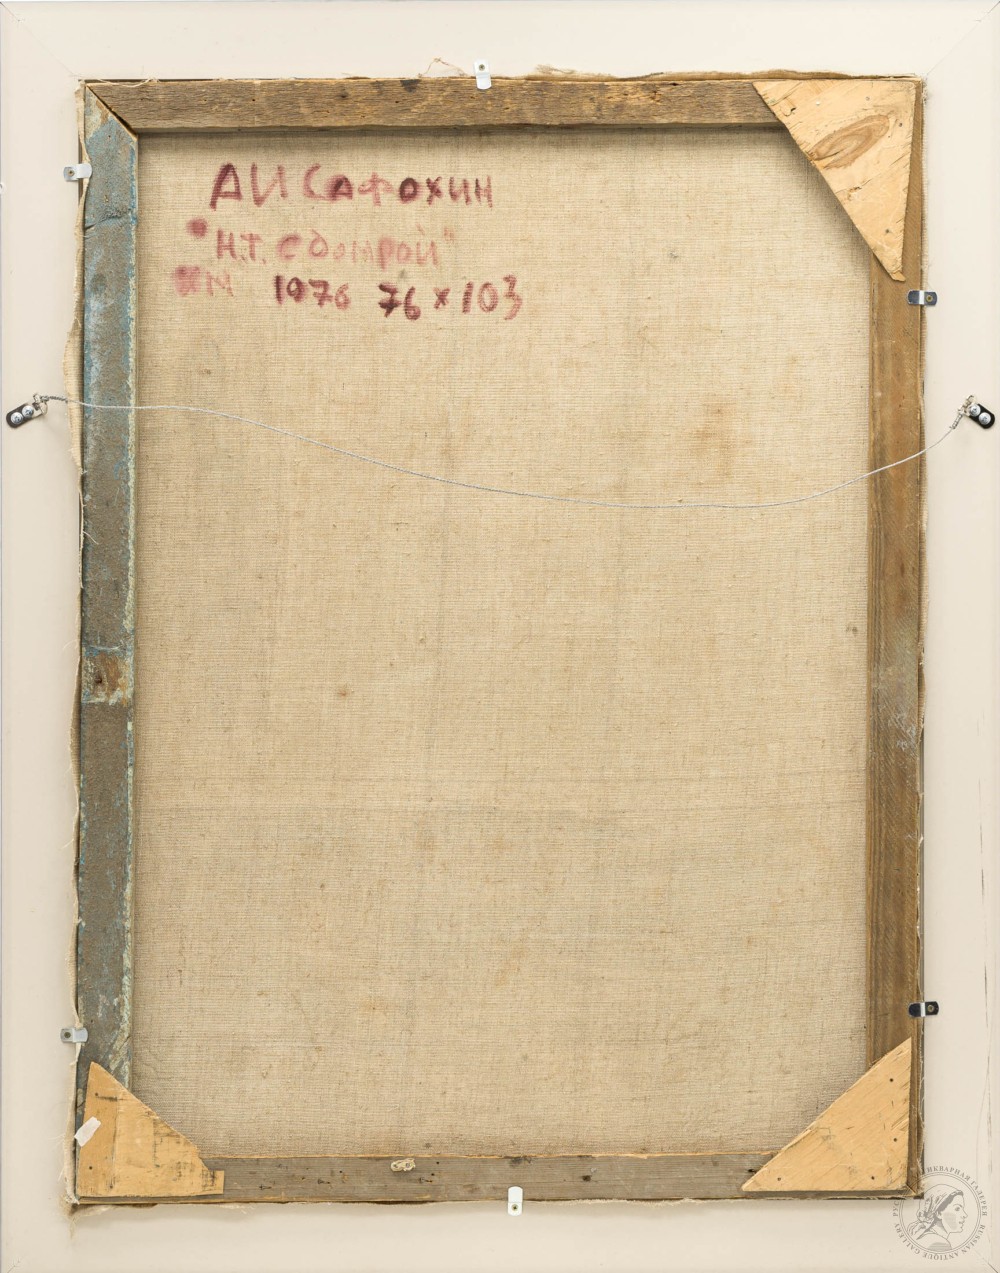 АИ Сафохин
"Н.Т. с домрой"
ХМ 1976 76 х 103
РУССКАЯ АНТИКВАРНАЯ ГАЛЕРЕЯ
RUSSIAN ANTIQUE GALLERY